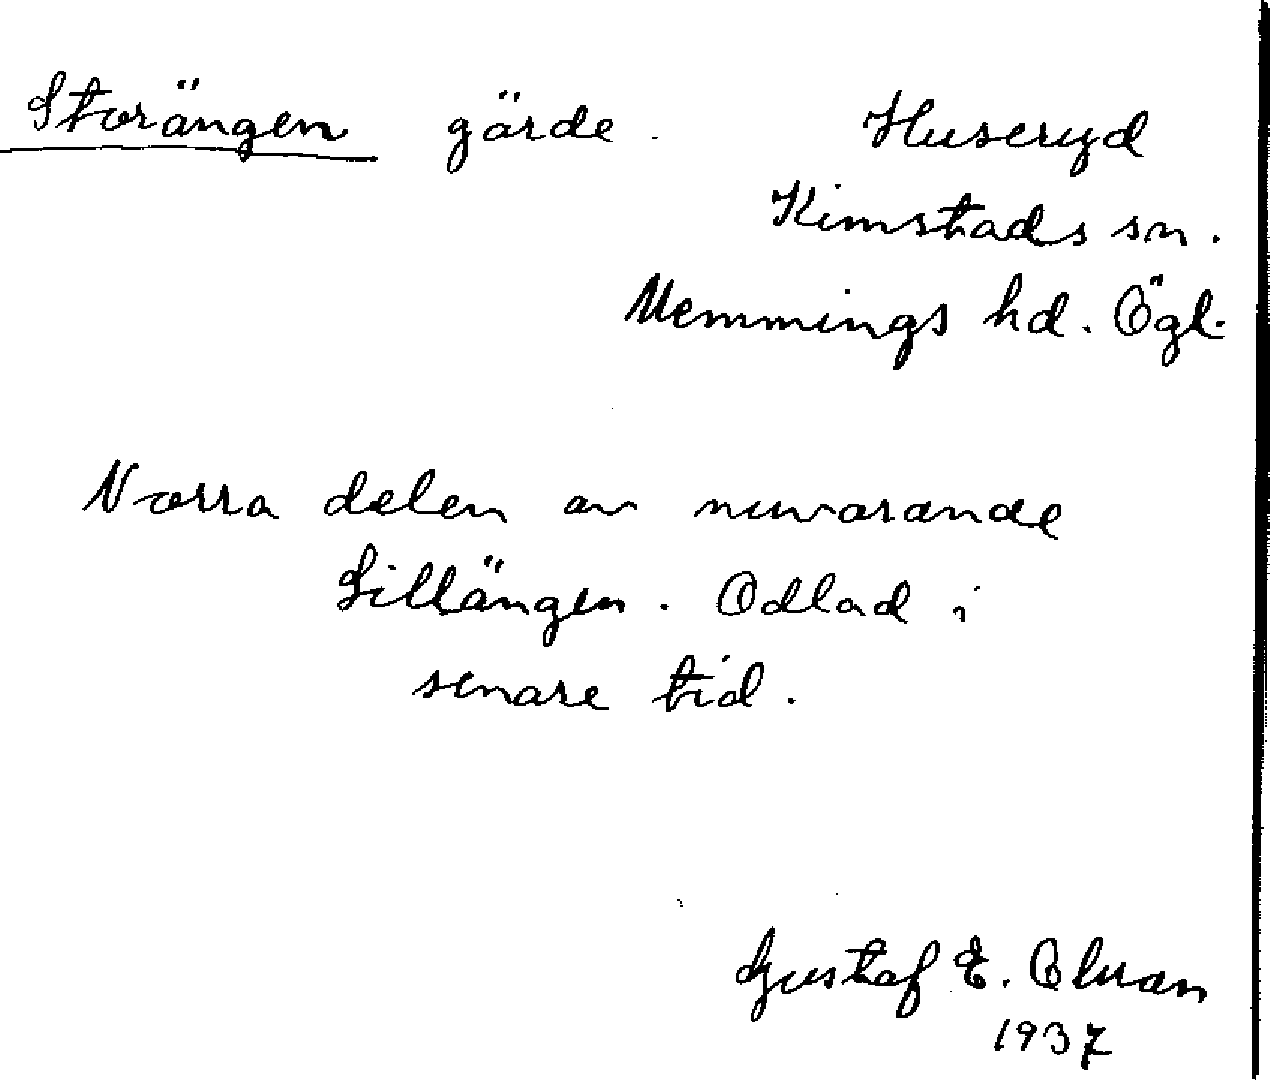 Storängen gärde. Huseryd
Kimstads sn.
Memmings hd. Ögl.
Norra delen av nuvarande
Lillängen. Odlad i
senare tid.
Gustaf E. Olsson
1937